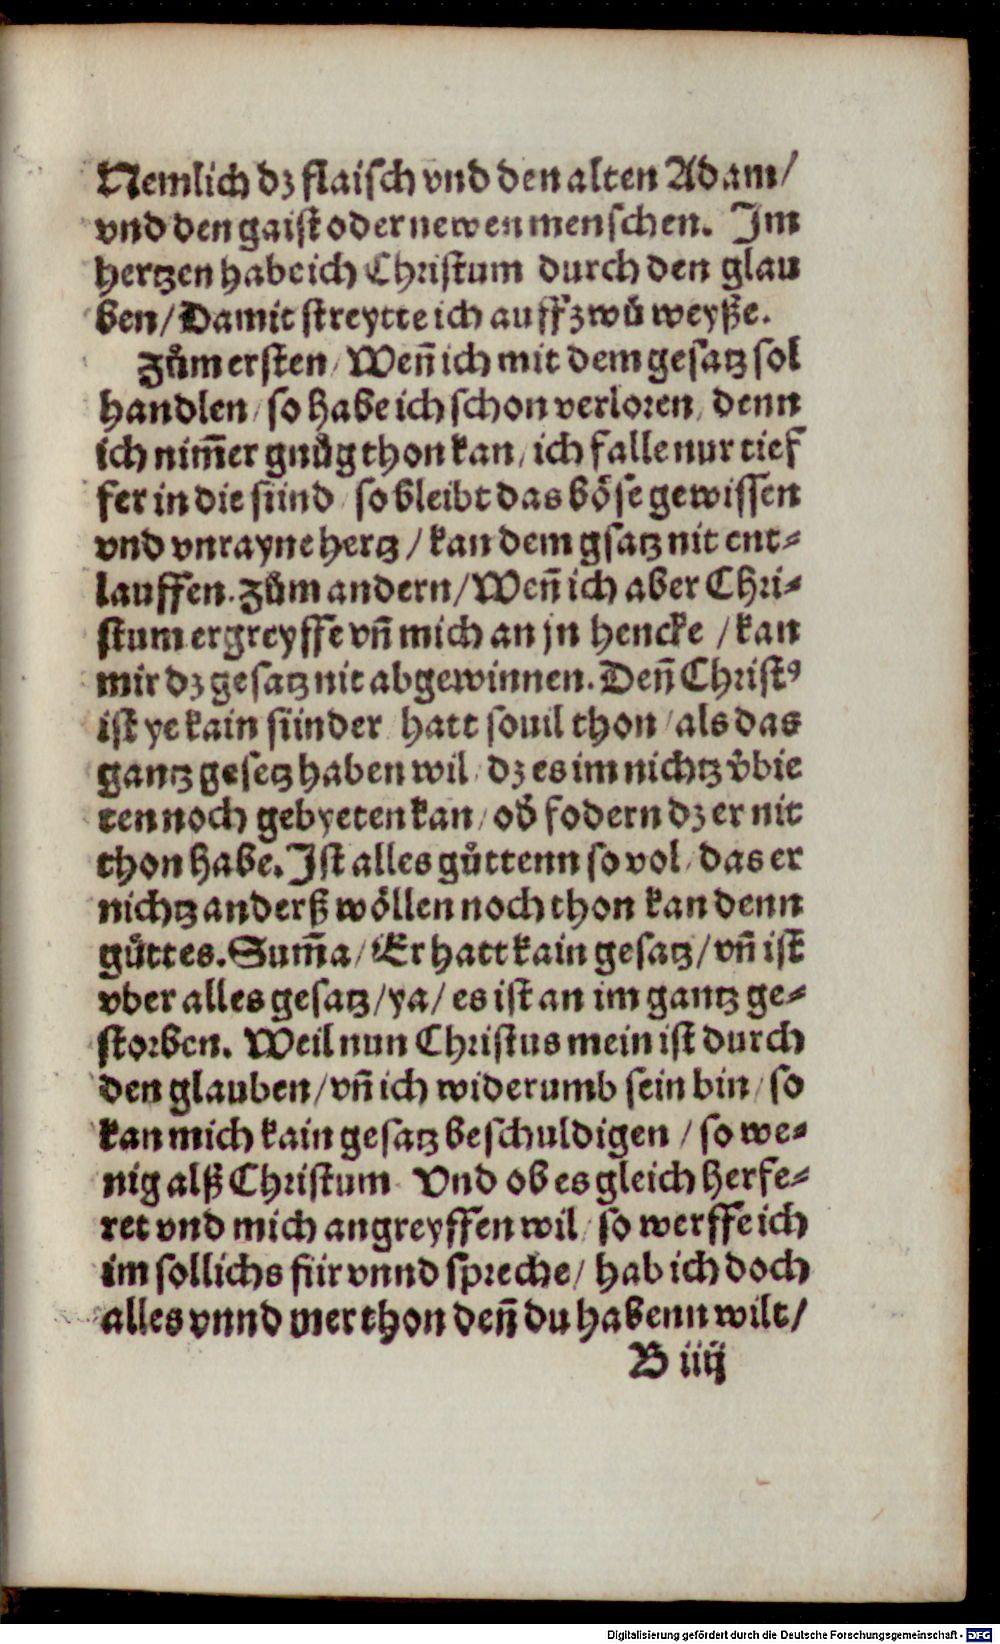 Nemlich dz flaisch vnd den alten Adam/
vnd den gaist oder newen menschen. Im
hertzen habe ich Christum durch den glau
ben/ Damit streytte ich auff zwů weyße.
Zům ersten/ Wen̄ ich mit dem gesatz sol
handlen/ so habe ich schon verloren/ denn
ich nim̄er gnůg thon kan/ ich falle nur tief
fer in die sünd/ so bleibt das böse gewissen
vnd vnrayne hertz/ kan dem gsatz nit ent⸗
lauffen. Zům andern/ Wen̄ ich aber Chri⸗
stum ergreyffe vn̄ mich an jn hencke/ kan
mir dz gesatz nit abgewinnen. Den̄ Christꝰ
ist ye kain sünder/ hatt souil thon/ als das
gantz gesetz haben wil/ dz es im nichtz v̊bie
ten noch gebyeten kan/ od̊ fodern dz er nit
thon habe. Ist alles gůttenn so vol/ das er
nichtz anderß wöllen noch thon kan denn
gůttes. Sum̄a/ Er hatt kain gesatz/ vn̄ ist
vber alles gesatz/ ya/ es ist an im gantz ge⸗
storben. Weil nun Christus mein ist durch
den glauben/ vn̄ ich widerumb sein bin/ so
kan mich kain gesatz beschuldigen/ so we⸗
nig alß Christum. Vnd ob es gleich herfe⸗
ret vnd mich angreyffen wil/ so werffe ich
im sollichs für vnnd spreche/ hab ich doch
alles vnnd mer thon den̄ du habenn wilt/
B iiij
Digitalisierung gefördert durch die Deutsche Forschungsgemeinschaft - DFG